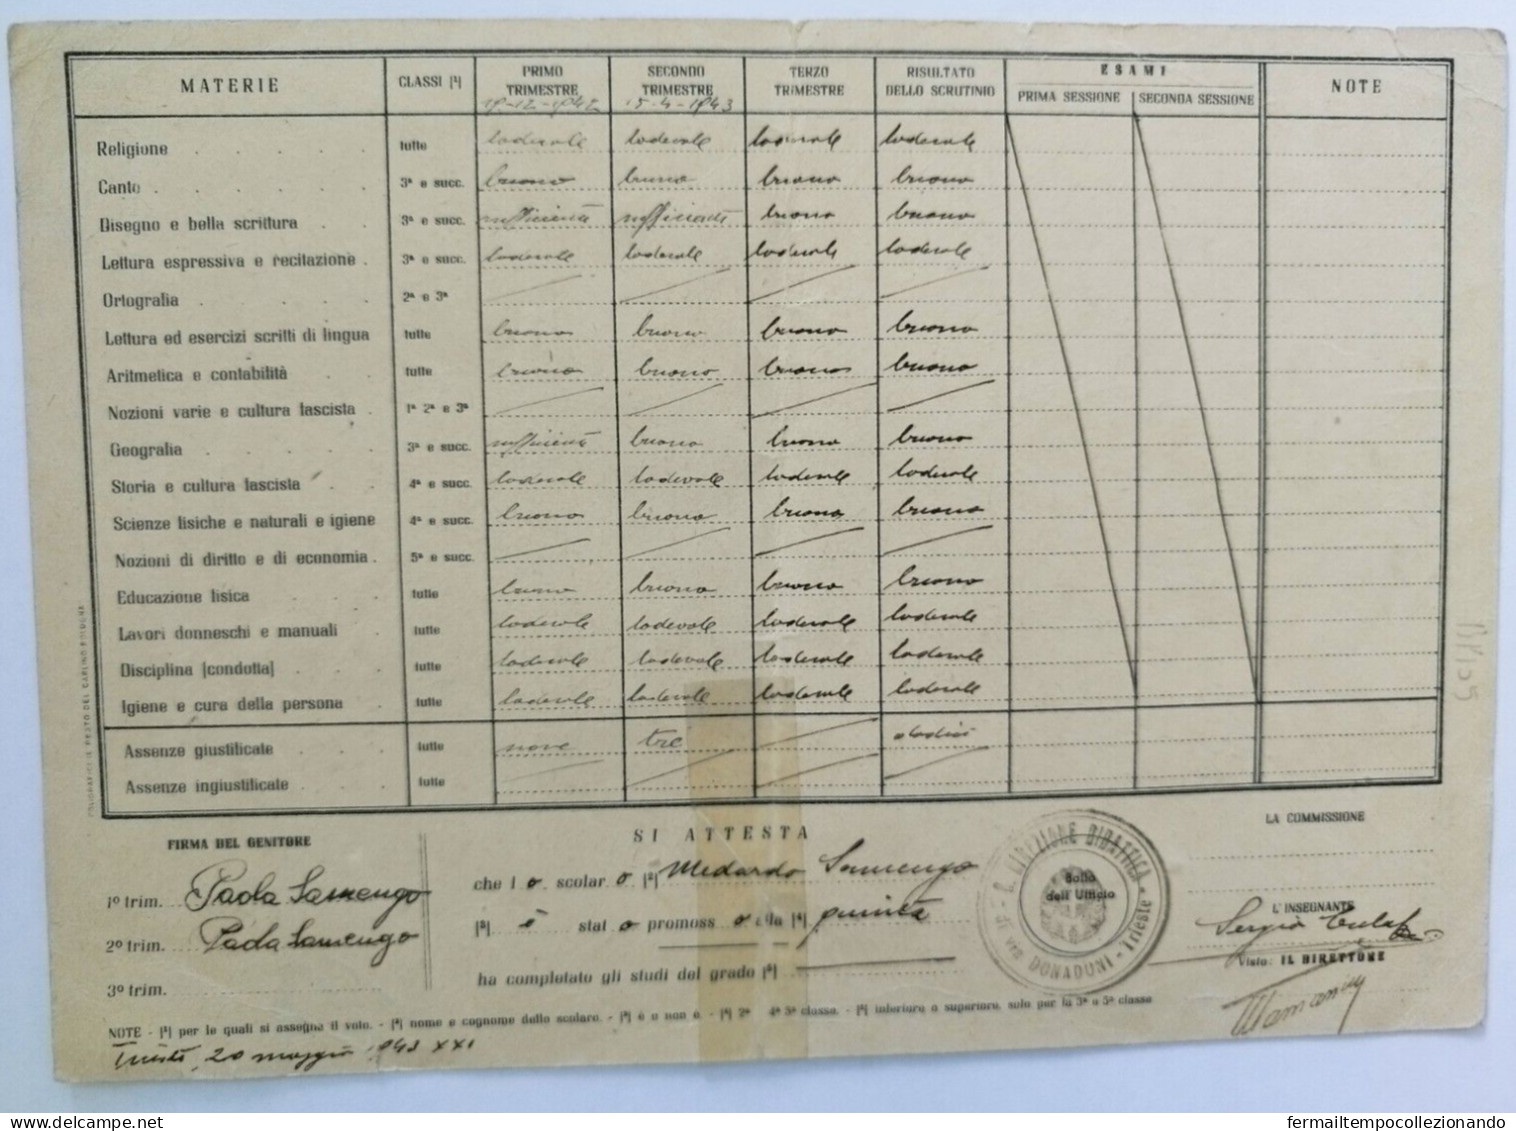 MATERIE CLASSI [¹] PRIMO TRIMESTRE SECONDO TRIMESTRE TERZO TRIMESTRE RISULTATO DELLO SCRUTINIO ESAMI PRIMA SESSIONE SECONDA SESSIONE NOTE
19-12-1942 15-4-1943
Religione tutte lodevole lodevole lodevole lodevole
Canto 3ª e succ. buono buono buono buono
Disegno e bella scrittura 3ª e succ. sufficiente sufficiente buono buono
Lettura espressiva e recitazione 3ª e succ. lodevole lodevole lodevole lodevole
Ortografia 2ª e 3ª
Lettura ed esercizi scritti di lingua tutte buono buono buono buono
Aritmetica e contabilità tutte buono buono buono buono
Nozioni varie e cultura fascista 1ª 2ª e 3ª
Geografia 3ª e succ. sufficiente buono buono buono
Storia e cultura fascista 4ª e succ. lodevole lodevole lodevole lodevole
Scienze fisiche e naturali e igiene 4ª e succ. buono buono buono buono
Nozioni di diritto e di economia 5ª e succ.
Educazione fisica tutte buono buono buono buono
Lavori donneschi e manuali tutte lodevole lodevole lodevole lodevole
Disciplina [condotta] tutte lodevole lodevole lodevole lodevole
Igiene e cura della persona tutte lodevole lodevole lodevole lodevole
Assenze giustificate tutte nove tre dodici
Assenze ingiustificate tutte
FIRMA DEL GENITORE
1º trim. Paola Samengo
2º trim. Paola Samengo
3º trim.
SI ATTESTA
che l o scolar o [²] Medardo Samengo
[³] è stat o promoss o alla [⁴] quinta
ha completato gli studi del grado [⁵]
DIREZIONE DIDATTICA - Trieste - di via DONADONI
Bollo dell'Ufficio
LA COMMISSIONE
L'INSEGNANTE
Sergio
Visto: IL DIRETTORE
NOTE - [¹] per le quali si assegna il voto. - [²] nome e cognome dello scolaro. - [³] è o non è. - [⁴] 2ª 4ª 5ª classe. - [⁵] inferiore o superiore, solo per la 3ª e 5ª classe
Trieste, 20 maggio 1943 XXI
fermailtempocollezionando